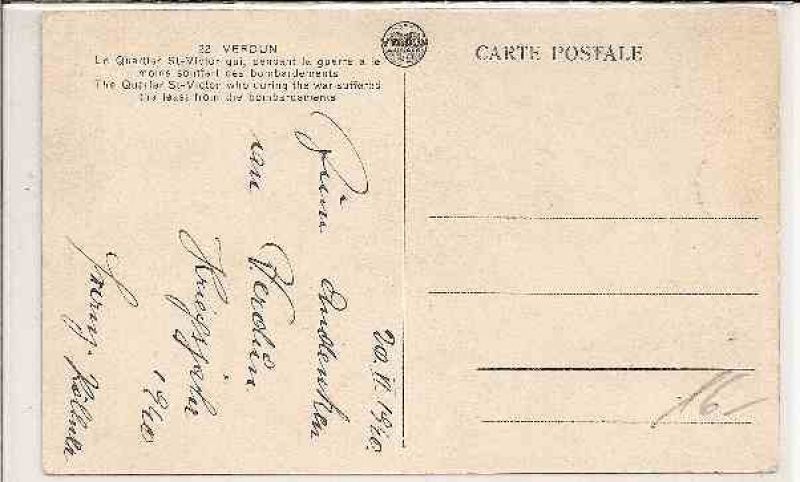 22 VERDUN
Le Quartier St-Victor qui, pendant la guerre a le
moins souffert des bombardements
The Quarter St-Victor who during the war suffered
the least from the bombardements
CARTE POSTALE
20. 11. 1940.
Zum Andenken
an Verdun
Kriegsjahr
1940
Köllner
16-